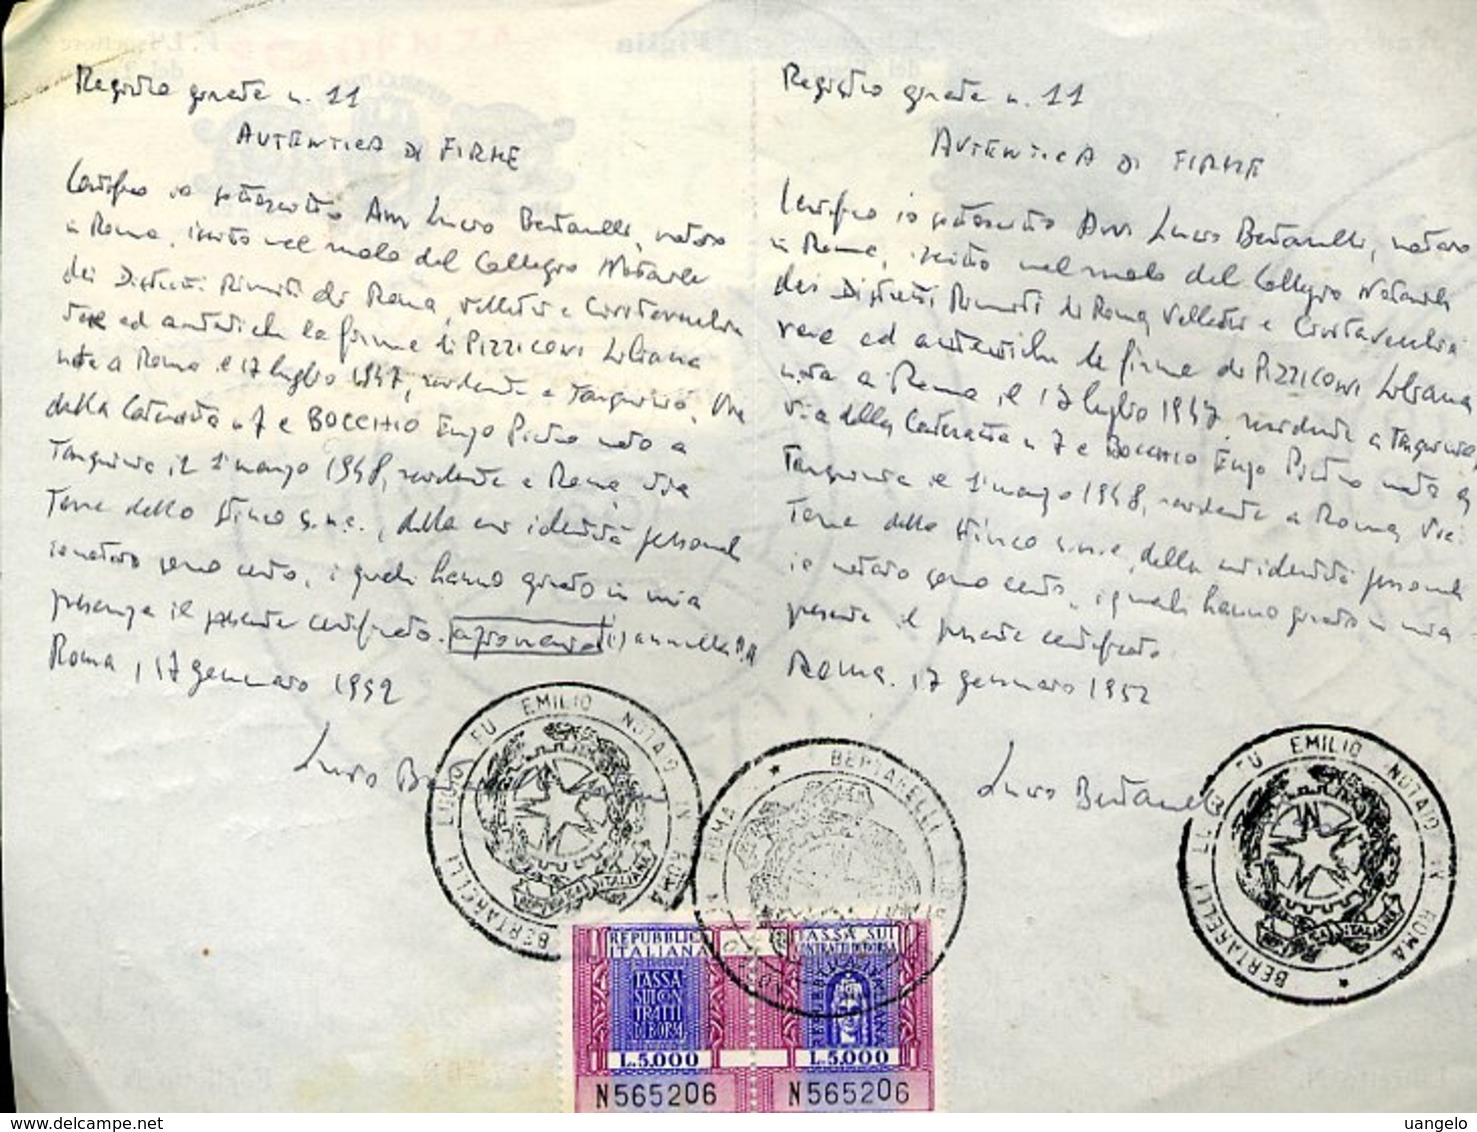 Registro giornale n. 11
AUTENTICA DI FIRME
Certifico io sottoscritto Avv. Lucio Bertarelli, notaro
a Roma, iscritto nel ruolo del Collegio Notarile
dei Distretti Riuniti di Roma, Velletri e Civitavecchia
vere ed autentiche le firme di PIZZICONI Liliana
nata a Roma il 17 luglio 1947, residente a Tarquinia, Via
della Cateratta n. 7 e BOCCHIO Enzo Pietro nato a
Tarquinia il 1° marzo 1948, residente a Roma via
Torre dello Stinco s.n.c., della cui identità personale
io notaro sono certo, i quali hanno firmato in mia
presenza il presente certificato. (1) annulla
Roma, 17 gennaio 1992
Lucio
BERTARELLI LUCIO FU EMILIO NOTAIO IN ROMA
REPUBBLICA ITALIANA
Registro giornale n. 11
AUTENTICA DI FIRME
Certifico io sottoscritto Avv. Lucio Bertarelli, notaro
a Roma, iscritto nel ruolo del Collegio Notarile
dei Distretti Riuniti di Roma, Velletri e Civitavecchia
vere ed autentiche le firme di PIZZICONI Liliana
nata a Roma, il 17 luglio 1947 residente a Tarquinia,
via della Cateratta n. 7 e BOCCHIO Enzo Pietro nato a
Tarquinia il 1° marzo 1948, residente a Roma, Via
Torre dello Stinco s.n.c., della cui identità personale
io notaro sono certo, i quali hanno firmato in mia
presenza il presente certificato.
Roma, 17 gennaio 1992
Lucio Bertarelli
BERTARELLI LUCIO FU EMILIO NOTAIO IN ROMA
ITALIANA
BERTARELLI
ROMA
REPUBBLICA
ITALIANA
TASSA
SUI CON
TRATTI
DI BORSA
L.5.000
N565206
TASSA SUI
CONTRATTI DI BORSA
REPUBBLICA ITALIANA
L.5.000
N565206
delcampe.net
uangelo